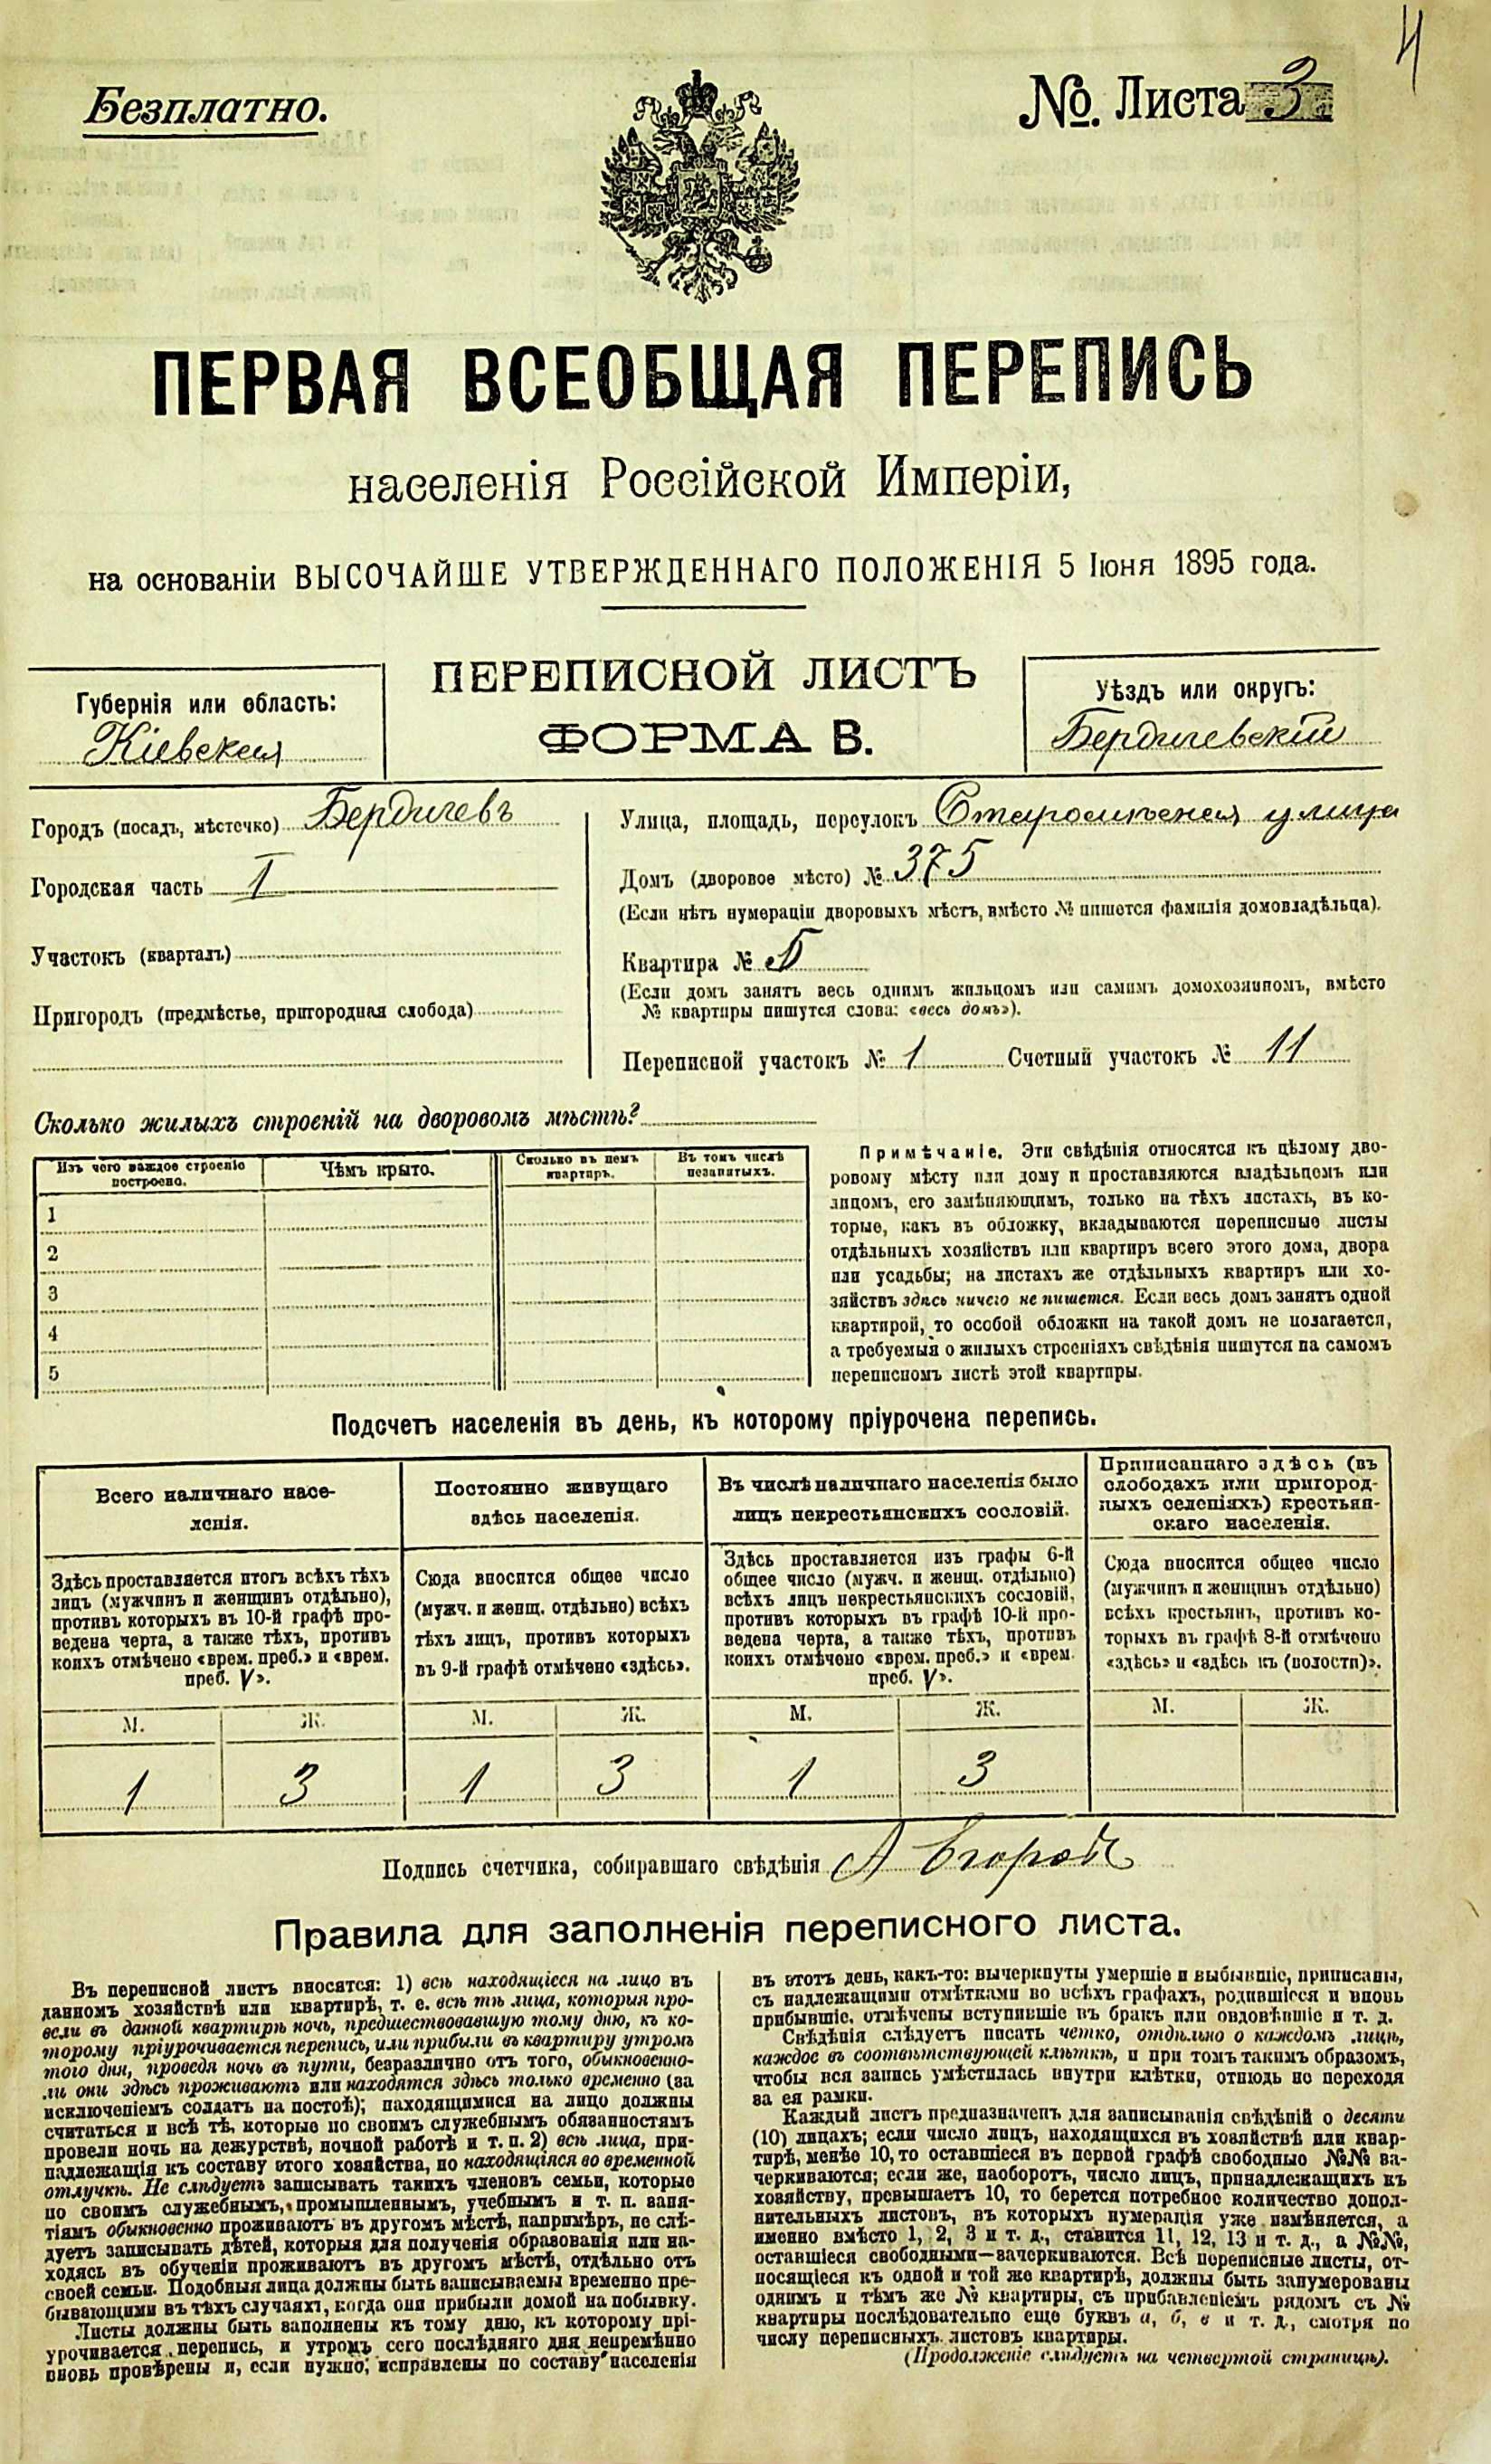 4
Безплатно.
№. Листа 3
ПЕРВАЯ ВСЕОБЩАЯ ПЕРЕПИСЬ
населенія Россійской Имперіи,
на основаніи ВЫСОЧАЙШЕ УТВЕРЖДЕННАГО ПОЛОЖЕНІЯ 5 Іюня 1895 года.
ПЕРЕПИСНОЙ ЛИСТЪ
ФОРМА В.
Губернія или область:
Кіевская
Уѣздъ или округъ:
Бердичевскій
Городъ (посадъ, мѣстечко) Бердичевъ
Городская часть I
Участокъ (кварталъ)
Пригородъ (предмѣстье, пригородная слобода)
Улица, площадь, переулокъ улица
Домъ (дворовое мѣсто) № 375
(Если нѣтъ нумераціи дворовыхъ мѣстъ, вмѣсто № пишется фамилія домовладѣльца).
Квартира №
(Если домъ занятъ весь однимъ жильцомъ или самимъ домохозяиномъ, вмѣсто
№ квартиры пишутся слова: «весь домъ»).
Переписной участокъ № 1 Счетный участокъ № 11
Сколько жилыхъ строеній на дворовомъ мѣстѣ?
Изъ чего каждое строеніе построено.
Чѣмъ крыто.
Сколько въ немъ квартиръ.
Въ томъ числѣ незанятыхъ.
1
2
3
4
5
Примѣчаніе. Эти свѣдѣнія относятся къ цѣлому дво-
ровому мѣсту или дому и проставляются владѣльцомъ или
лицомъ, его замѣняющимъ, только на тѣхъ листахъ, въ ко-
торые, какъ въ обложку, вкладываются переписные листы
отдѣльныхъ хозяйствъ или квартиръ всего этого дома, двора
или усадьбы; на листахъ же отдѣльныхъ квартиръ или хо-
зяйствъ здѣсь ничего не пишется. Если весь домъ занятъ одной
квартирой, то особой обложки на такой домъ не полагается,
а требуемыя о жилыхъ строеніяхъ свѣдѣнія пишутся на самомъ
переписномъ листѣ этой квартиры.
Подсчетъ населенія въ день, къ которому пріурочена перепись.
Всего наличнаго насе-
ленія.
Здѣсь проставляется итогъ всѣхъ тѣхъ
лицъ (мужчинъ и женщинъ отдѣльно),
противъ которыхъ въ 10-й графѣ про-
ведена черта, а также тѣхъ, противъ
коихъ отмѣчено «врем. преб.» и «врем.
преб. V».
М. Ж.
1 3
Постоянно живущаго
здѣсь населенія.
Сюда вносится общее число
(мужч. и женщ. отдѣльно) всѣхъ
тѣхъ лицъ, противъ которыхъ
въ 9-й графѣ отмѣчено «здѣсь».
М. Ж.
1 3
Въ числѣ наличнаго населенія было
лицъ некрестьянскихъ сословій.
Здѣсь проставляется изъ графы 6-й
общее число (мужч. и женщ. отдѣльно)
всѣхъ лицъ некрестьянскихъ сословій,
противъ которыхъ въ графѣ 10-й про-
ведена черта, а также тѣхъ, противъ
коихъ отмѣчено «врем. преб.» и «врем.
преб. V».
М. Ж.
1 3
Приписаннаго здѣсь (въ
слободахъ или пригород-
ныхъ селеніяхъ) крестьян-
скаго населенія.
Сюда вносится общее число
(мужчинъ и женщинъ отдѣльно)
всѣхъ крестьянъ, противъ ко-
торыхъ въ графѣ 8-й отмѣчено
«здѣсь» и «здѣсь къ (волости)».
М. Ж.
Подпись счетчика, собиравшаго свѣдѣнія
Правила для заполненія переписного листа.
Въ переписной листъ вносятся: 1) всѣ находящіеся на лицо въ
данномъ хозяйствѣ или квартирѣ, т. е. всѣ тѣ лица, которыя про-
вели въ данной квартирѣ ночь, предшествовавшую тому дню, къ ко-
торому пріурочивается перепись, или прибыли въ квартиру утромъ
того дня, проведя ночь въ пути, безразлично отъ того, обыкновенно-
ли они здѣсь проживаютъ или находятся здѣсь только временно (за
исключеніемъ солдатъ на постоѣ); находящимися на лицо должны
считаться и всѣ тѣ, которые по своимъ служебнымъ обязанностямъ
провели ночь на дежурствѣ, ночной работѣ и т. п. 2) всѣ лица, при-
надлежащія къ составу этого хозяйства, но находящіяся во временной
отлучкѣ. Не слѣдуетъ записывать такихъ членовъ семьи, которые
по своимъ служебнымъ, промышленнымъ, учебнымъ и т. п. заня-
тіямъ обыкновенно проживаютъ въ другомъ мѣстѣ, напримѣръ, не слѣ-
дуетъ записывать дѣтей, которыя для полученія образованія или на-
ходясь въ обученіи проживаютъ въ другомъ мѣстѣ, отдѣльно отъ
своей семьи. Подобныя лица должны быть записываемы временно пре-
бывающими въ тѣхъ случаяхъ, когда они прибыли домой на побывку.
Листы должны быть заполнены къ тому дню, къ которому прі-
урочивается перепись, и утромъ сего послѣдняго дня непремѣнно
вновь провѣрены и, если нужно, исправлены по составу населенія
въ этотъ день, какъ-то: вычеркнуты умершіе и выбывшіе, приписаны,
съ надлежащими отмѣтками во всѣхъ графахъ, родившіеся и вновь
прибывшіе, отмѣчены вступившіе въ бракъ или овдовѣвшіе и т. д.
Свѣдѣнія слѣдуетъ писать четко, отдѣльно о каждомъ лицѣ,
каждое въ соотвѣтствующей клѣткѣ, и при томъ такимъ образомъ,
чтобы вся запись умѣстилась внутри клѣтки, отнюдь не переходя
за ея рамки.
Каждый листъ предназначенъ для записыванія свѣдѣній о десяти
(10) лицахъ; если число лицъ, находящихся въ хозяйствѣ или квар-
тирѣ, менѣе 10, то оставшіеся въ первой графѣ свободные №№ за-
черкиваются; если же, наоборотъ, число лицъ, принадлежащихъ къ
хозяйству, превышаетъ 10, то берется потребное количество допол-
нительныхъ листовъ, въ которыхъ нумерація уже измѣняется, а
именно вмѣсто 1, 2, 3 и т. д., ставится 11, 12, 13 и т. д., а №№,
оставшіеся свободными—зачеркиваются. Всѣ переписные листы, от-
носящіеся къ одной и той же квартирѣ, должны быть занумерованы
однимъ и тѣмъ же № квартиры, съ прибавленіемъ рядомъ съ №
квартиры послѣдовательно еще буквъ а, б, в и т. д., смотря по
числу переписныхъ листовъ квартиры.
(Продолженіе слѣдуетъ на четвертой страницѣ).